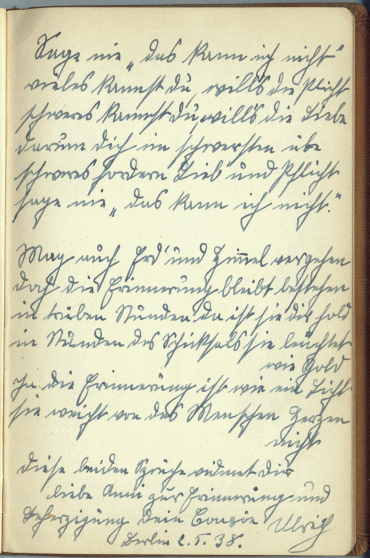 Sage nie „das kann ich nicht"
vieles kannst du, will's die Pflicht
schweres kannst du, will's die Liebe
darum dich im schwersten übe
schweres fordern Lieb und Pflicht
sage nie „das kann ich nicht."
Mag auch Erd' und Himmel vergehen
doch die Erinnerung bleibt bestehen
in trüben Stunden da ist sie dir hold
in Stunden des Schicksals sie leuchtet
wie Gold
Ja die Erinnerung ist wie ein Licht
sie weicht von des Menschen Herzen
nicht
Diese beiden Sprüche widmet dir
liebe Anni zur Erinnerung und
Beherzigung dein Cousin Ulrich
Berlin 2.5.38.